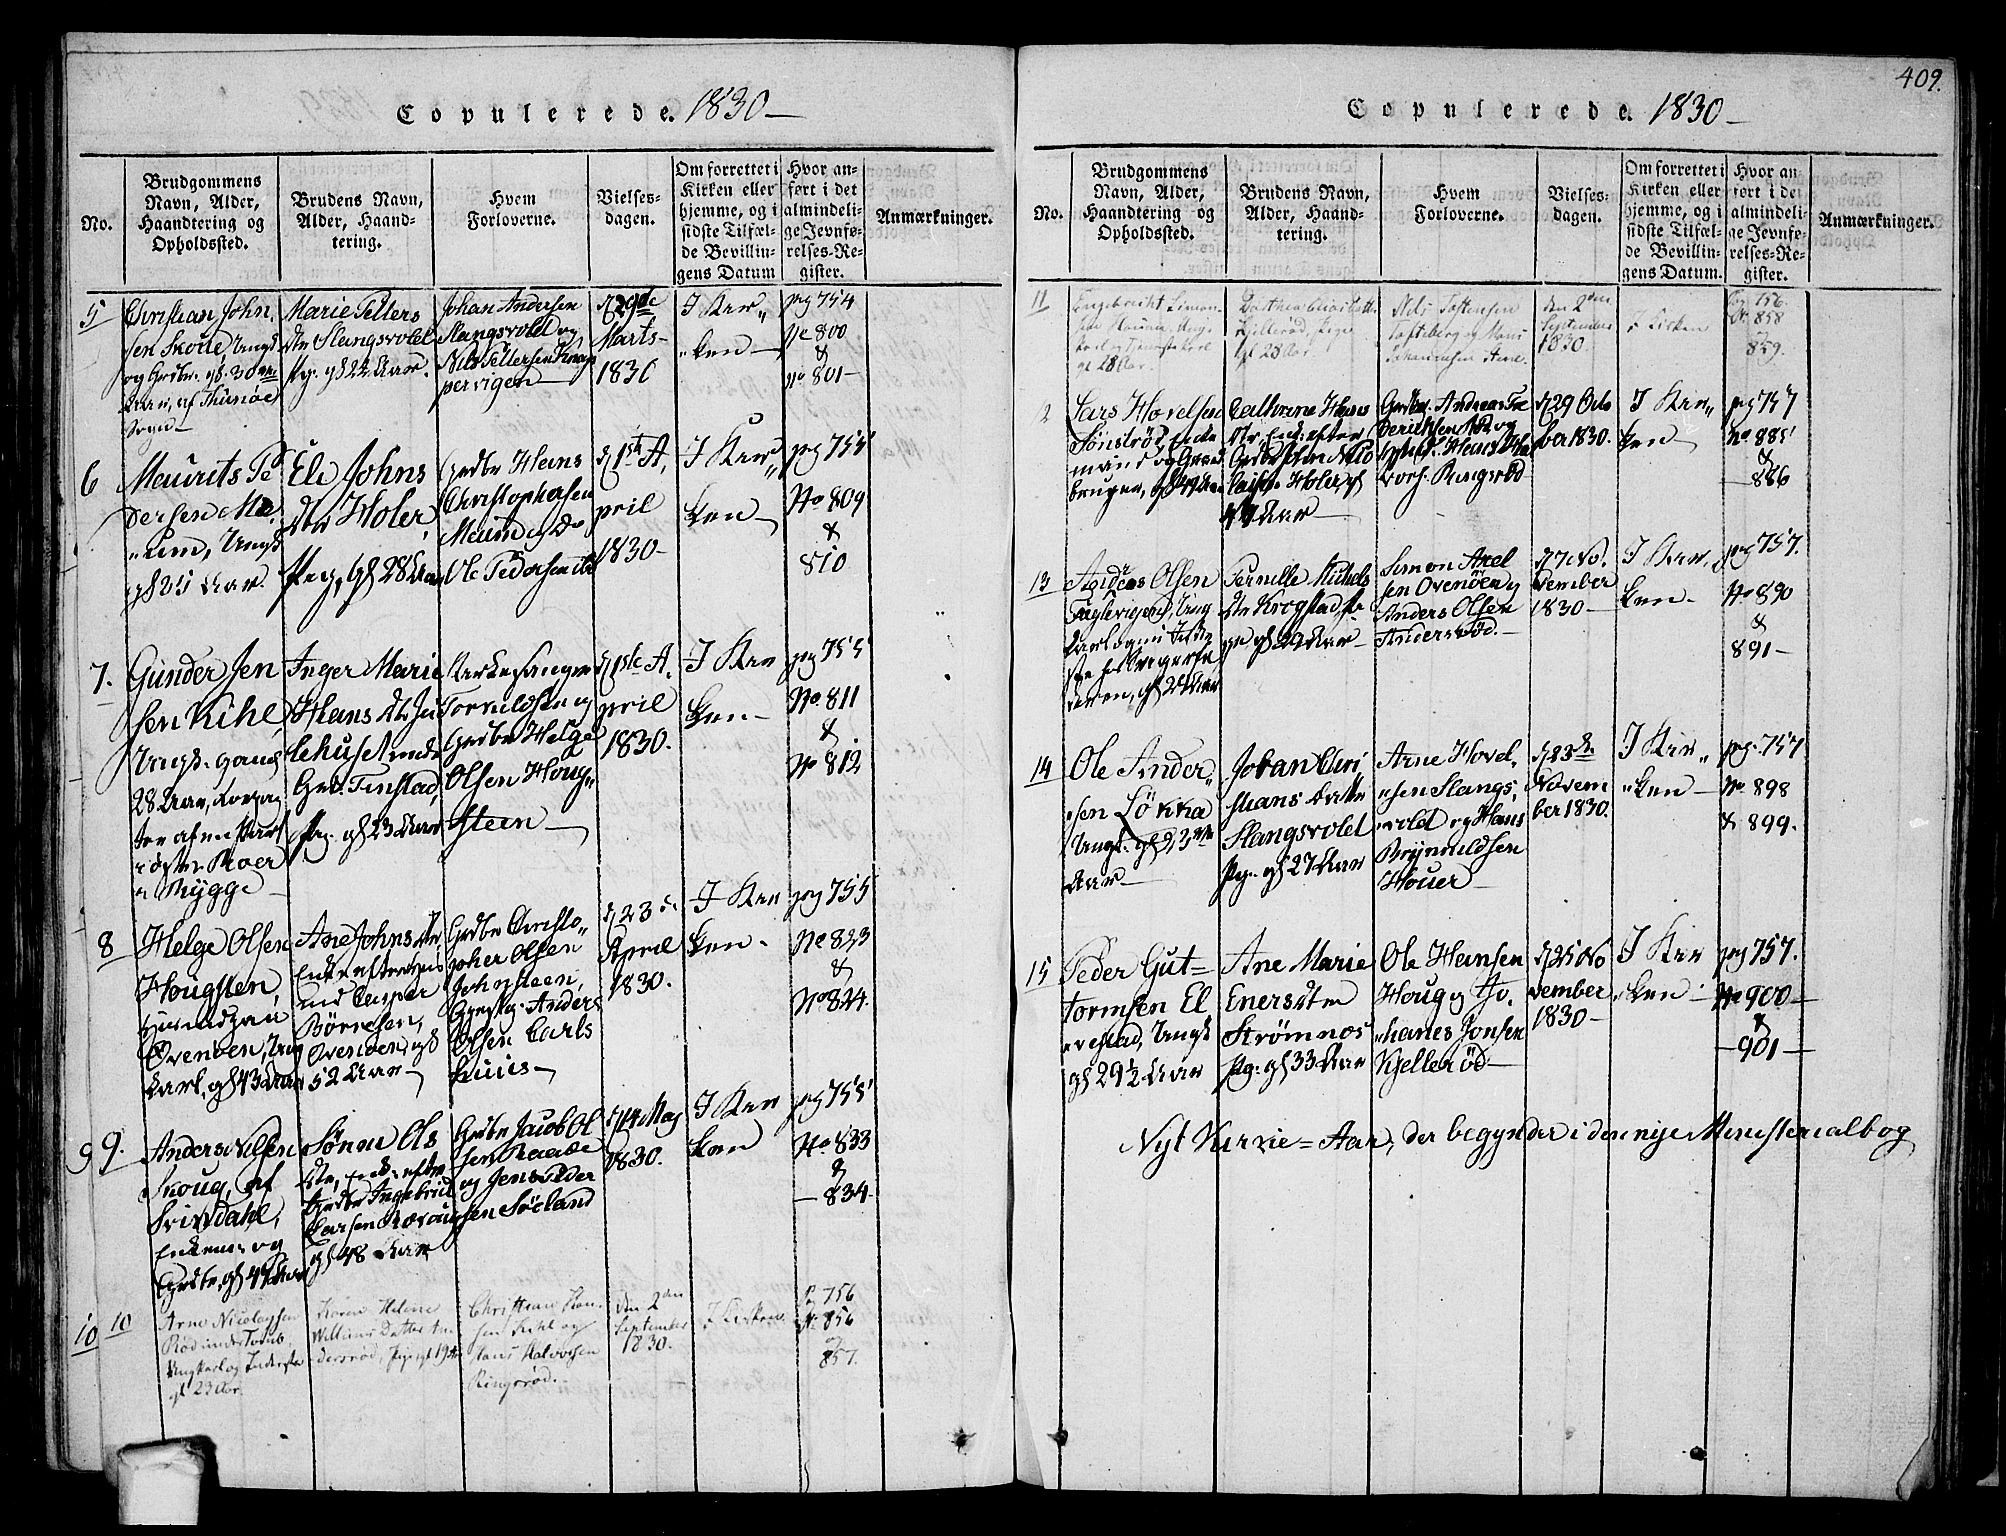 409.
Copulerede. 1830
No.
Brudgommens
Navn, Alder,
Haandtering og
Opholdssted.
Brudens Navn,
Alder, Haand-
tering.
Hvem
Forloverne.
Vielses-
dagen.
Om forrettet i
Kirken eller
hjemme, og i
sidste Tilfæl-
de Bevillin-
gens Datum
Hvor an-
ført i det
almindeli-
ge Jevnfø-
relses-Re-
gister.
Anmærkninger.
5
Christian John
sen Skoue, Ungk
og Grdbr. gl. 30
Aar, af Thunøe
Sogn
Marie Petters
Dtr Slangsvold
Pg. gl. 22 Aar.
Johan Andersen
Slangsvold og
Nils Pettersen Knap
pervigen
d 29de
Marts
1830
I Kir
ken
pag 754
No 800
&
No 801
6
Maurits Pe
dersen
Ungk
gl 25 Aar.
Ele Johns
Dtr Holer,
Pige, gl 28 Aar
Grdbr Hans
Christophersen
Ole Pedersen
d 1ste A,
pril
1830
I Kir
ken
pag 755
No 809
&
810
7.
Gunder Jen
sen Kihl,
Ungk.
28 Aar,
Roer
i Rygge
Inger Marie
Hans Dtr
Tinstad,
Pg. gl 23 Aar
Kirkesanger
Torvildsen og
Grdbr Helge
Olsen Houg
steen
d 1ste A.
pril
1830.
I Kir
ken
pag 755
No. 811
&
No 812
8
Helge Olsen
Hougsten,
Ovenøen, Ung
karl, gl 43 Aar
Ane Johns Dtr,
Enke efter
Casper
Børresen,
Ovenøen, gl
52 Aar
Grdbr Christo
pher Olsen
Johnsteen,
Anders
Olsen Carls
huus
d 23de
April
1830.
I Kir
ken.
pag 755
No 823
&
No 824.
9 9.
Anders Nilsen
Skoug, af
Svindahl,
Enkem. og
Grdbr, gl 47 Aar
Sønnu Ols
Dtr, Enke efter
Grdbr Ingebrict
Larsen
gl 48 Aar
Grdbr Jacob Ol
sen Raade
og Jens Peder
sen Sôeland
d 14 May
1830.
I Kir
ken
pag 755
No. 833
&
834.
10 10
Arne Nicolaysen
Rød under Tomb
Ungkarl og Inderste
gl 23 Aar.
Karen Helene
Williums Datter An
dersrød, Pige gl 19 Aar
Christian Han
sen Kihl og
Hans Halvorsen
Ringsrød.
den 2den
September
1830.
I Kirken
P. 756
No. 856
og
857.
Copulerede. 1830
No.
Brudgommens
Navn, Alder,
Haandtering og
Opholdssted.
Brudens Navn,
Alder, Haand-
tering.
Hvem
Forloverne.
Vielses-
dagen.
Om forrettet i
Kirken eller
hjemme, og i
sidste Tilfæl-
de Bevillin-
gens Datum.
Hvor an-
ført i det
almindeli-
ge Jevnfø-
relses-Re-
gister.
Anmærkninger.
11
Engebrecht Simon
sen Ung
karl og Tjenestekarl
gl 28 Aar.
Kjellerød, Pige
gl 28 Aar.
Nils Tostensen
og Hans
Johannesen Arne.
den 2den
September
1830.
I Kirken
Pag 756.
No. 858
859.
2
Lars Hovelsen
Sönströd, Enke
mand og Gaard
bruger, gl 49 Aar
Cathrine Hans
Dtr, Enke efter
Holer, gl
49 Aar
Grdbr. Andreas Fre
deriksen og
Hans Hal
vors. Ringsröd
d 29 Octo
ber 1830.
I Kir
ken
pag 757
No. 885
&
886
13
Anders Olsen
Fuglevigen, Ung
karl
gl 24 Aar
Pernille Michels
Dtr Krogstad, Pi
ge gl 29 Aar
Simon Axel
sen Ovenöen og
Anders Olsen
Andersröd.
d 7 No.
vember
1830
I Kir.
ken
pag 757.
No 890
&
891
14
Ole Ander
sen Løkka
Ungk. gl 23
Aar
Johan Chri
stians Datter
Slangsvold
Pg. gl 27 Aar
Arne Hovel
sen Slangs
vold og Hans
Brynnildsen
Houer
d 23de
Novem
ber 1830.
I Kir
ken
pag. 757
No. 898
& 899.
15
Peder Gut=
tormsen El
vestad, Ungk
gl 29 1/2 Aar
Ane Marie
Eners Dtr
Strömnes
Pg. gl 33 Aar
Ole Hansen
Houg og Jo.
hanes Jonsen
Kjelleröd
d 25 No
vember
1830
I Kir
ken
pag 757.
No 900
&
901
Nyt Kirke=Aar, der begynder i den nye Ministerialbog